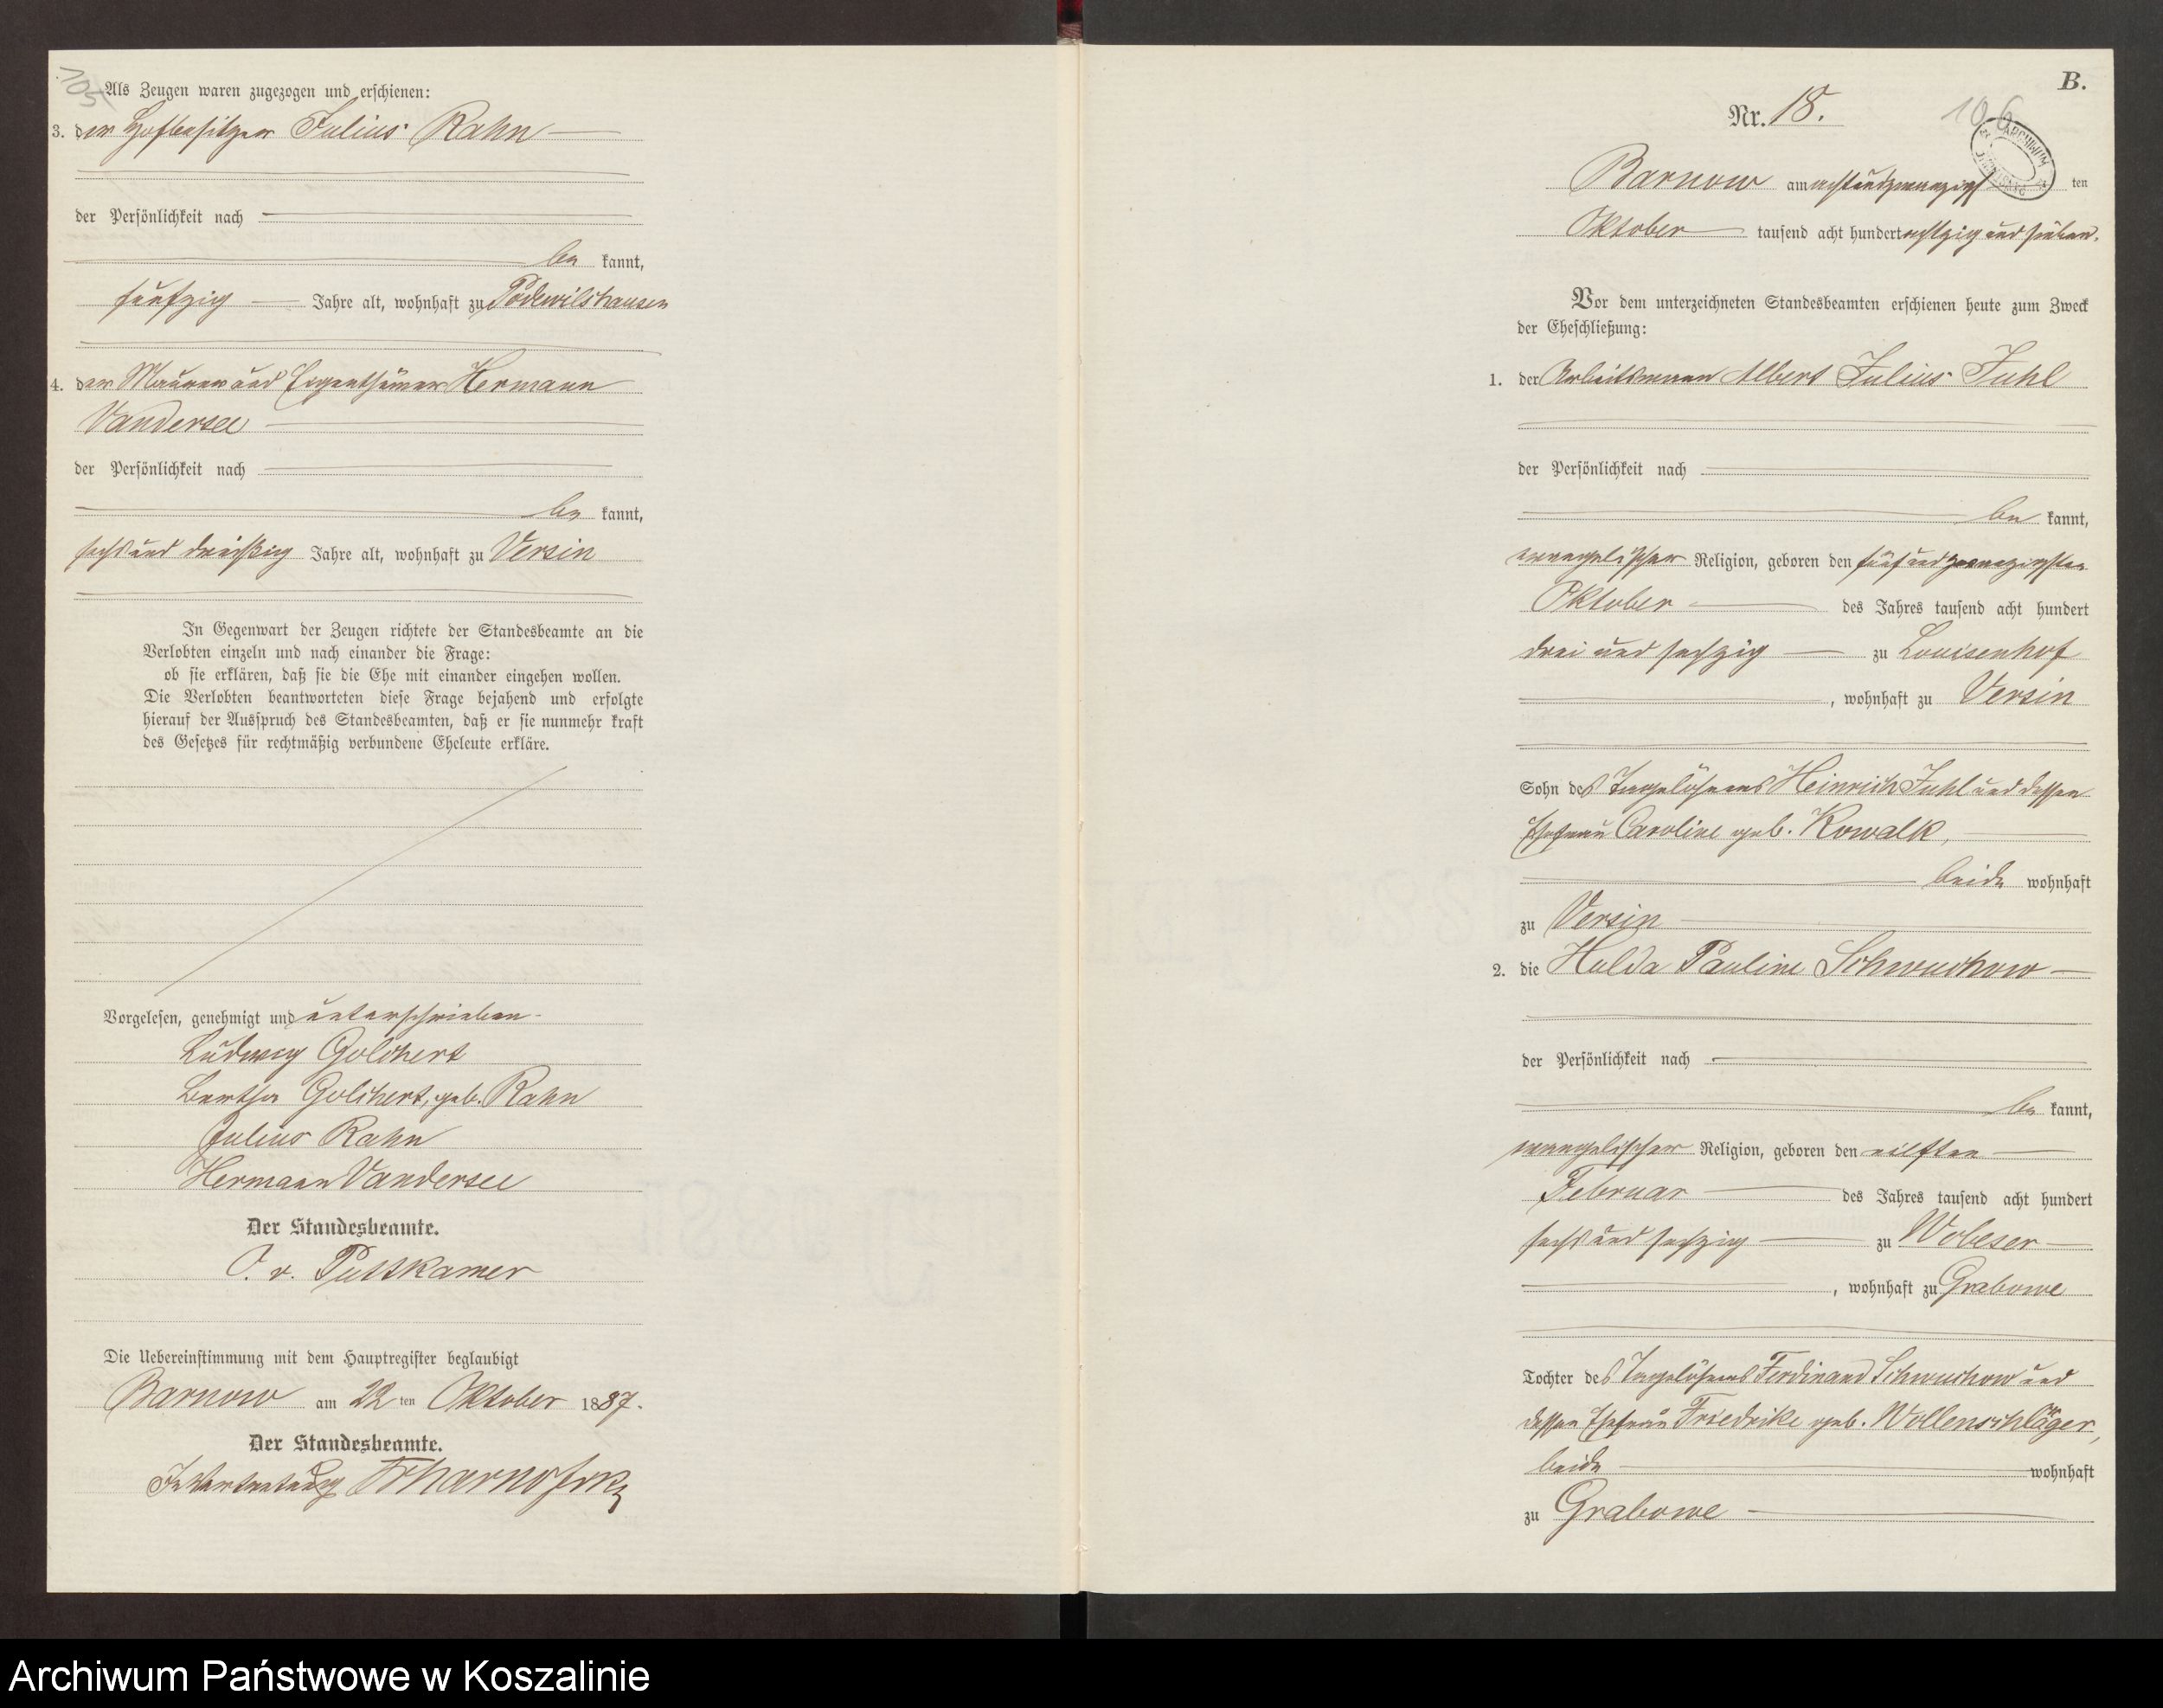 105
Als Zeugen waren zugezogen und erschienen:
3. der Hofbesitzer Julius Rahn
der Persönlichkeit nach
be kannt,
fünfzig Jahre alt, wohnhaft zu Podewilshausen
4. der Maurer und Eigenthümer Hermann
Vandersee
der Persönlichkeit nach
be kannt,
sechs und dreißig Jahre alt, wohnhaft zu Versin
In Gegenwart der Zeugen richtete der Standesbeamte an die
Verlobten einzeln und nach einander die Frage:
ob sie erklären, daß sie die Ehe mit einander eingehen wollen.
Die Verlobten beantworteten diese Frage bejahend und erfolgte
hierauf der Ausspruch des Standesbeamten, daß er sie nunmehr kraft
des Gesetzes für rechtmäßig verbundene Eheleute erkläre.
Vorgelesen, genehmigt und unterschrieben
Ludwig Golchert
Bertha Golchert, geb. Rahn
Julius Rahn
Hermann Vandersee
Der Standesbeamte.
O. v. Puttkamer
Die Uebereinstimmung mit dem Hauptregister beglaubigt
Barnow am 22 ten Oktober 1887.
Der Standesbeamte.
In Vertretung
B.
Nr. 18.
106
ARCHIWUM
Barnow am achtundzwanzigs ten
Oktober tausend acht hundert achtzig und sieben.
Vor dem unterzeichneten Standesbeamten erschienen heute zum Zweck
der Eheschließung:
1. der Arbeitsmann Albert Julius Juhl
der Persönlichkeit nach
be kannt,
evangelischer Religion, geboren den fünf und zwanzigsten
Oktober des Jahres tausend acht hundert
drei und sechzig zu Louisenhof
, wohnhaft zu Versin
Sohn des Tagelöhners Heinrich Juhl und dessen
Ehefrau Caroline geb. Kowalk,
beide wohnhaft
zu Versin
2. die Hulda Pauline Schwuchow
der Persönlichkeit nach
be kannt,
evangelischer Religion, geboren den eilften
Februar des Jahres tausend acht hundert
sechs und sechzig zu Wobeser
, wohnhaft zu Grabowe
Tochter des Tagelöhners Ferdinand Schwuchow und
dessen Ehefrau Friedrike geb. Wollenschläger,
beide wohnhaft
zu Grabowe
Archiwum Państwowe w Koszalinie